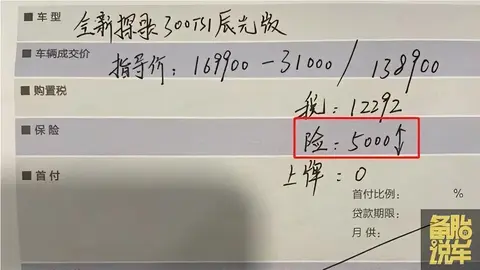 车型 全新探歌300TSI辰光版
车辆成交价 指导价：169900-31000/138900
购置税
税：12292
保险 险：5000↑
首付 上牌：0
首付比例： %
贷款期限：
月供：
备胎说车